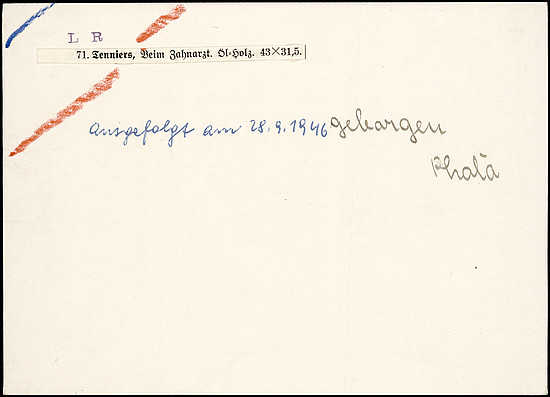 L R
71. Tenniers, Beim Zahnarzt. Öl-Holz. 43×31,5.
Ausgefolgt am 28.9.1946 geborgen